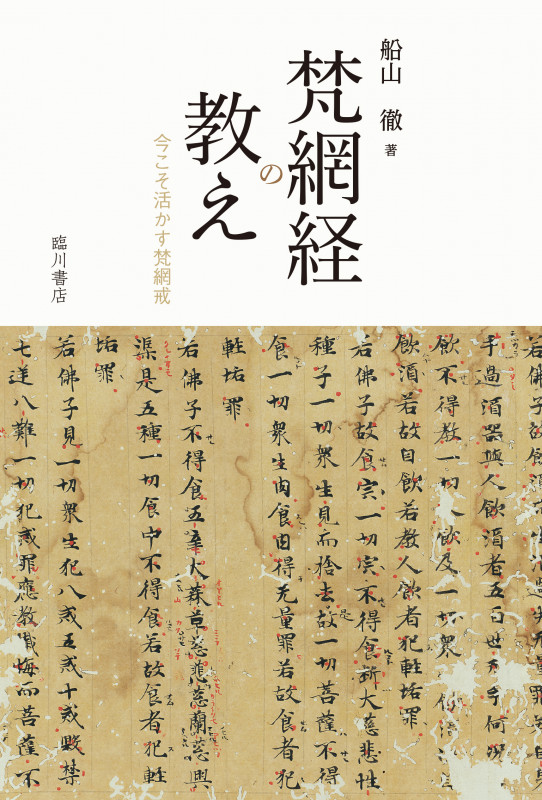 船山 徹 著
梵網経
の
教え
今こそ活かす梵網戒
臨川書店
若佛子故飲酒
手過酒器與人飲酒者五百世无手何況
飲不得教一切人飲及一切衆
飲酒若故自飲若教人飲者犯軽垢罪
若佛子故食宍一切宍不得食断大慈悲性
種子一切衆生見而捨去故一切菩薩不得
食一切衆生肉食肉得无量罪若故食者犯
軽垢罪
若佛子不得食五辛大蒜革葱慈葱蘭葱興
渠是五種一切食中不得食若故食者犯軽
垢罪
若佛子見一切衆生犯八戒五戒十戒毀禁
七逆八難一切犯戒罪應教懺悔而菩薩不